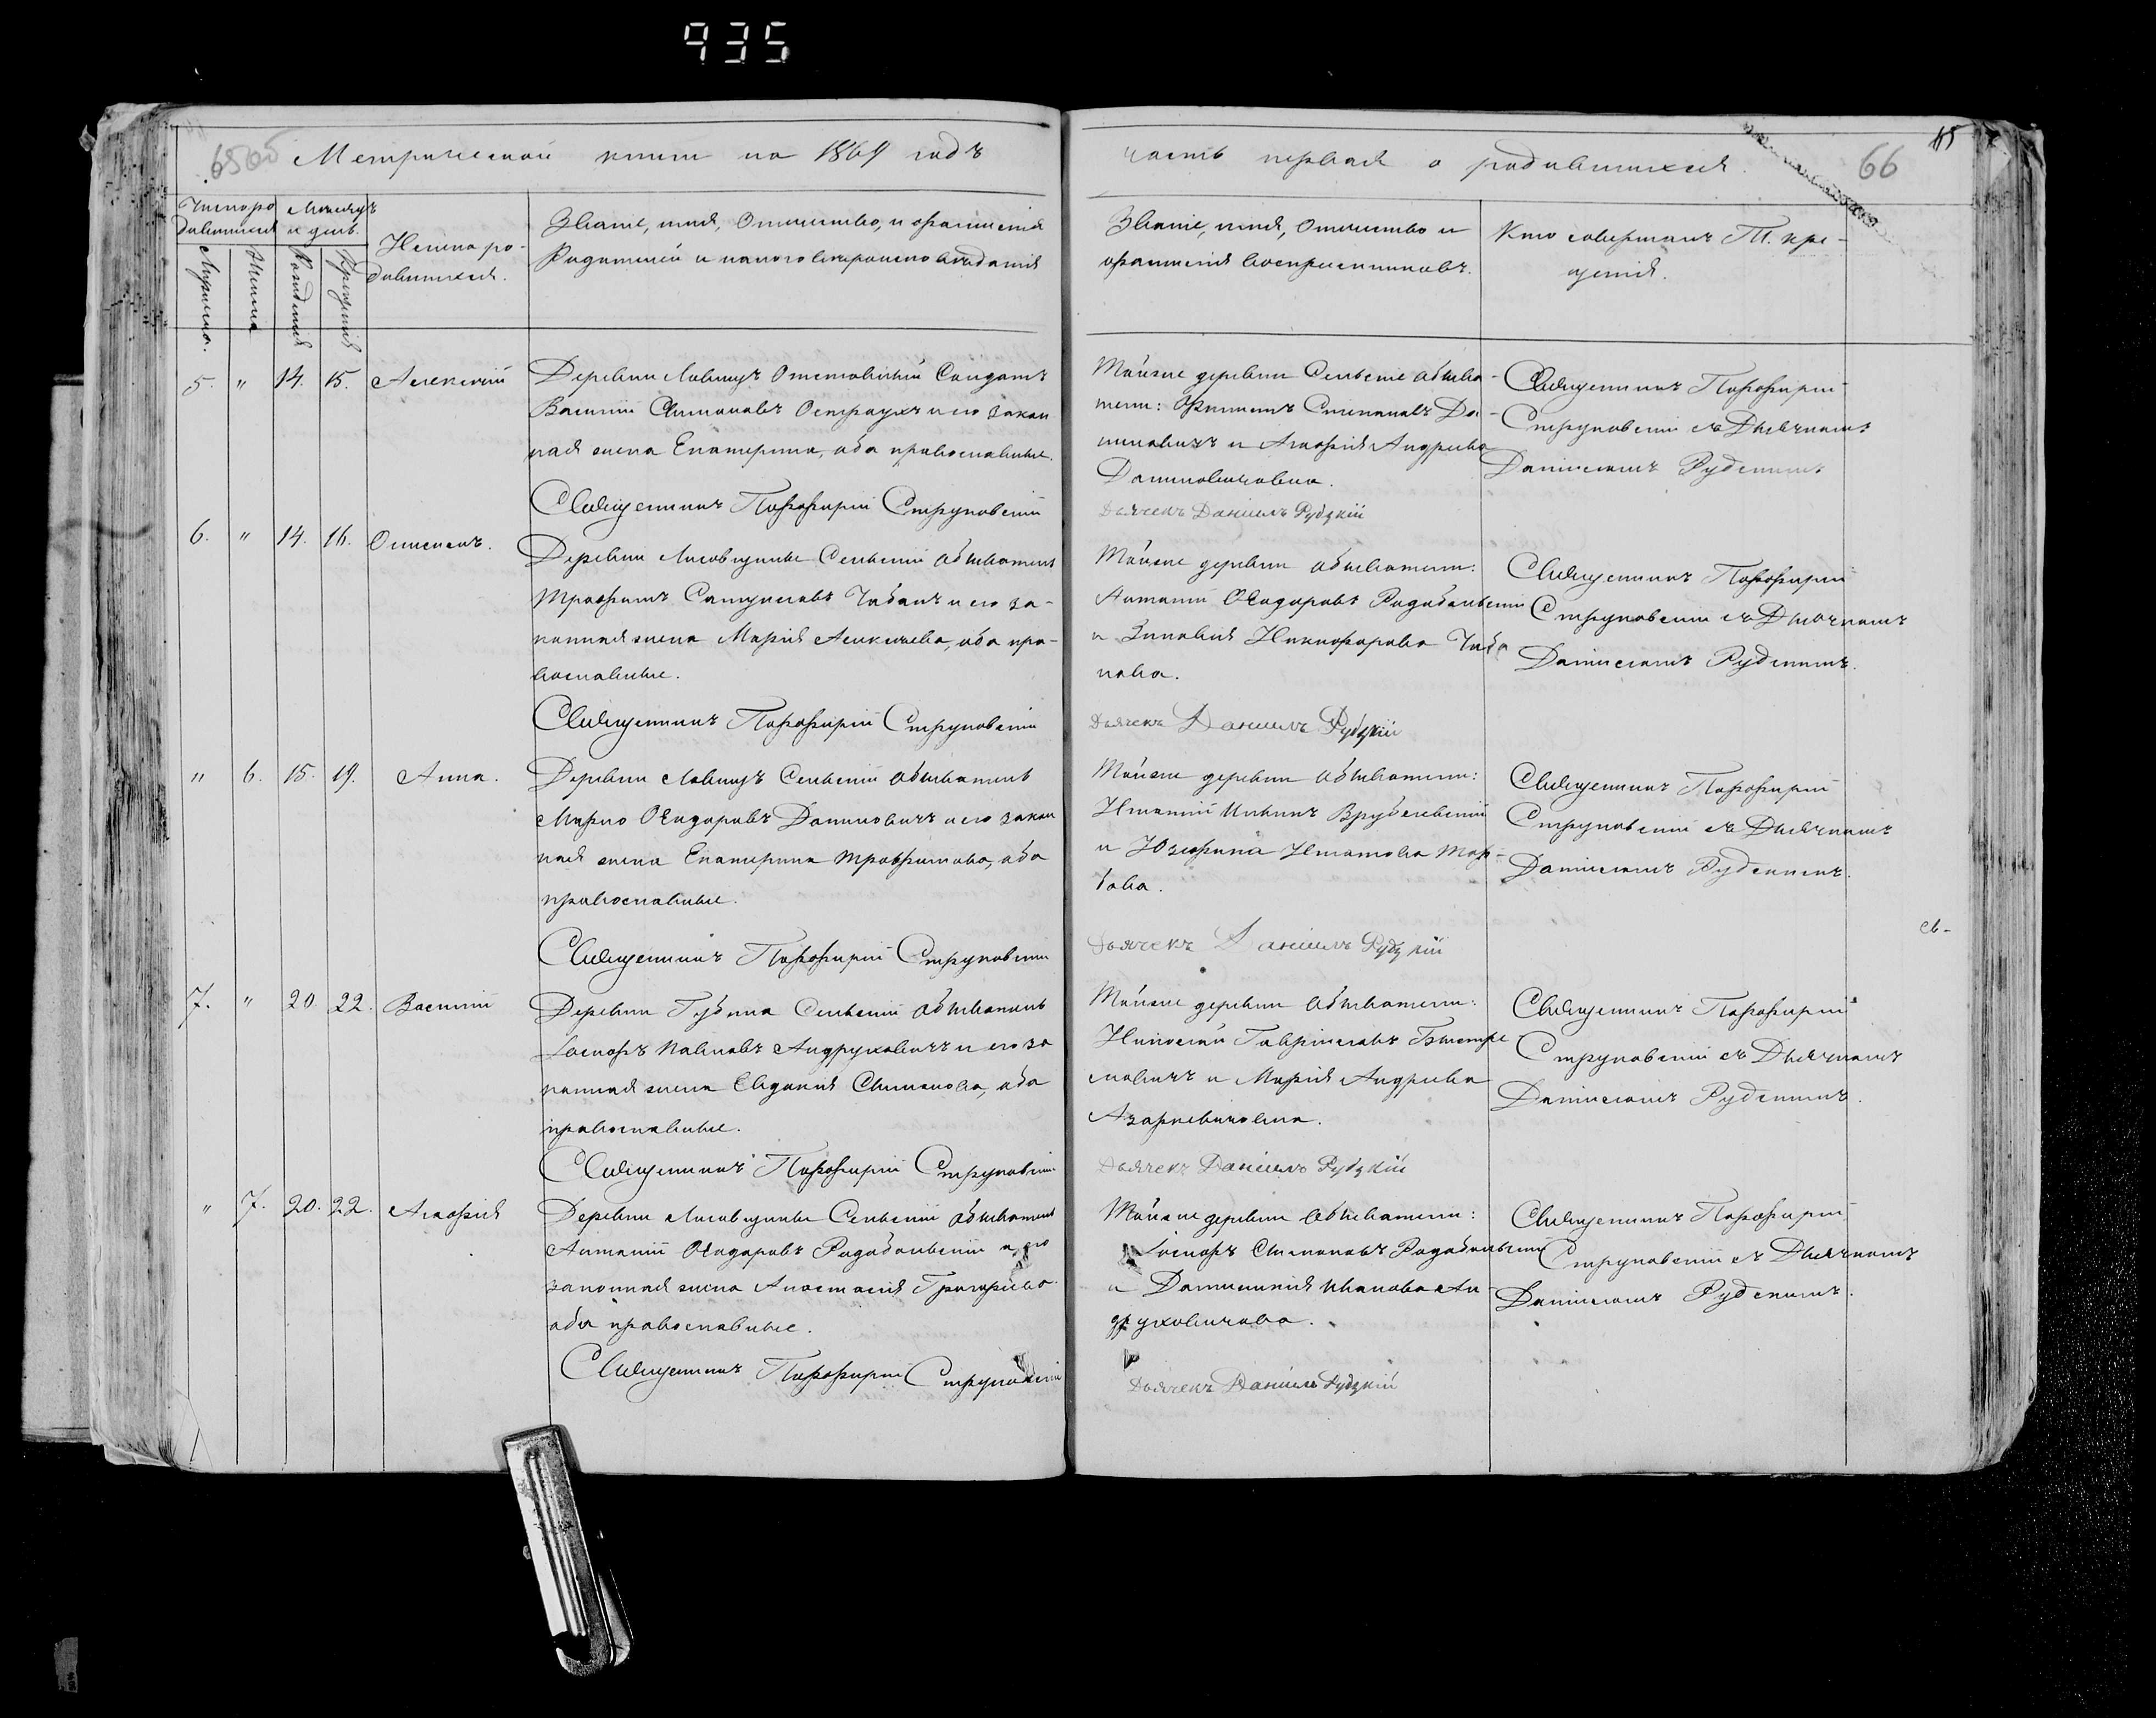 935
65об Метрической книги на 1869 годъ
часть первая о родившихся.
66
Число ро
дившихся
Мѣсяцъ
и день.
Мужеска.
Женска
Рожденія
Крещенія
Имена ро-
дившихся.
Званіе, имя, Отчество, и фамилія
Родителей и какого вѣроисповѣданія
Званіе, имя, Отчество и
фамилія воспріемниковъ.
Кто совершалъ Т. кре-
щенія.
5. " 14. 15. Алексѣй
Деревни Ловищъ Отставной Солдатъ
Василій Симоновъ Остраухъ и его закон
ная жена Екатерина, оба православные.
Священникъ Порфирій Струковскій
Тойже деревни Сельскіе обыва-
тели: Филипъ Степановъ До-
миновичъ и Агафія Андреева
Доминовичовна.
Дьячекъ Даніилъ Рудзкій
Священникъ Порфирій
Струковскій съ Дьячкомъ
Даніиломъ Рудзкимъ
6. " 14. 16. Осипъ.
Деревни Лисовщины Сельскій обыватель
Трофимъ Самуиловъ Чабанъ и его за-
конная жена Марія Алексѣева, оба пра-
вославные.
Священникъ Порфирій Струковскій
Тойже деревни обыватели:
Антоній Ѳеодоровъ Радобольскій
и Зиновія Никифорова Чаба
нова.
Дьячекъ Даніилъ Рудзкій
Священникъ Порфирій
Струковскій съ Дьячкомъ
Даніиломъ Рудзкимъ.
" 6. 15. 19. Анна.
Деревни Ловищъ Сельскій обыватель
Марко Ѳеодоровъ Доминовичъ и его закон
ная жена Екатерина Трофимова, оба
православные.
Священникъ Порфирій Струковскій
Тойже деревни обыватели:
Игнатій Ивановъ Врублевскій
и Юзефина Игнатова
Дьячекъ Даніилъ Рудзкій
Священникъ Порфирій
Струковскій съ Дьячкомъ
Даніиломъ Рудзкимъ.
7. " 20. 22. Василій
Деревни Губина Сельскій обыватель
Іосифъ Павловъ Андруховичъ и его за
конная жена Евдокія Симонова, оба
православные.
Священникъ Порфирій Струковскій
Тойже деревни обыватели:
Николай Гавріиловъ
и Марія Андреева
Азаркевичовна.
Дьячекъ Даніилъ Рудзкій
Священникъ Порфирій
Струковскій съ Дьячкомъ
Даніиломъ Рудзкимъ.
" 7. 20. 22. Агафія
Деревни Лисовщины Сельскій обыватель
Антоній Ѳеодоровъ Радобольскій и его
законная жена Анастасія Григорьева
оба православные.
Священникъ Порфирій Струковскій
Тойже деревни обыватели:
Іосифъ Симоновъ Радобольскій
и Доминикія Иванова Ан
друховичова.
Дьячекъ Даніилъ Рудзкій
Священникъ Порфирій
Струковскій съ Дьячкомъ
Даніиломъ Рудзкимъ.